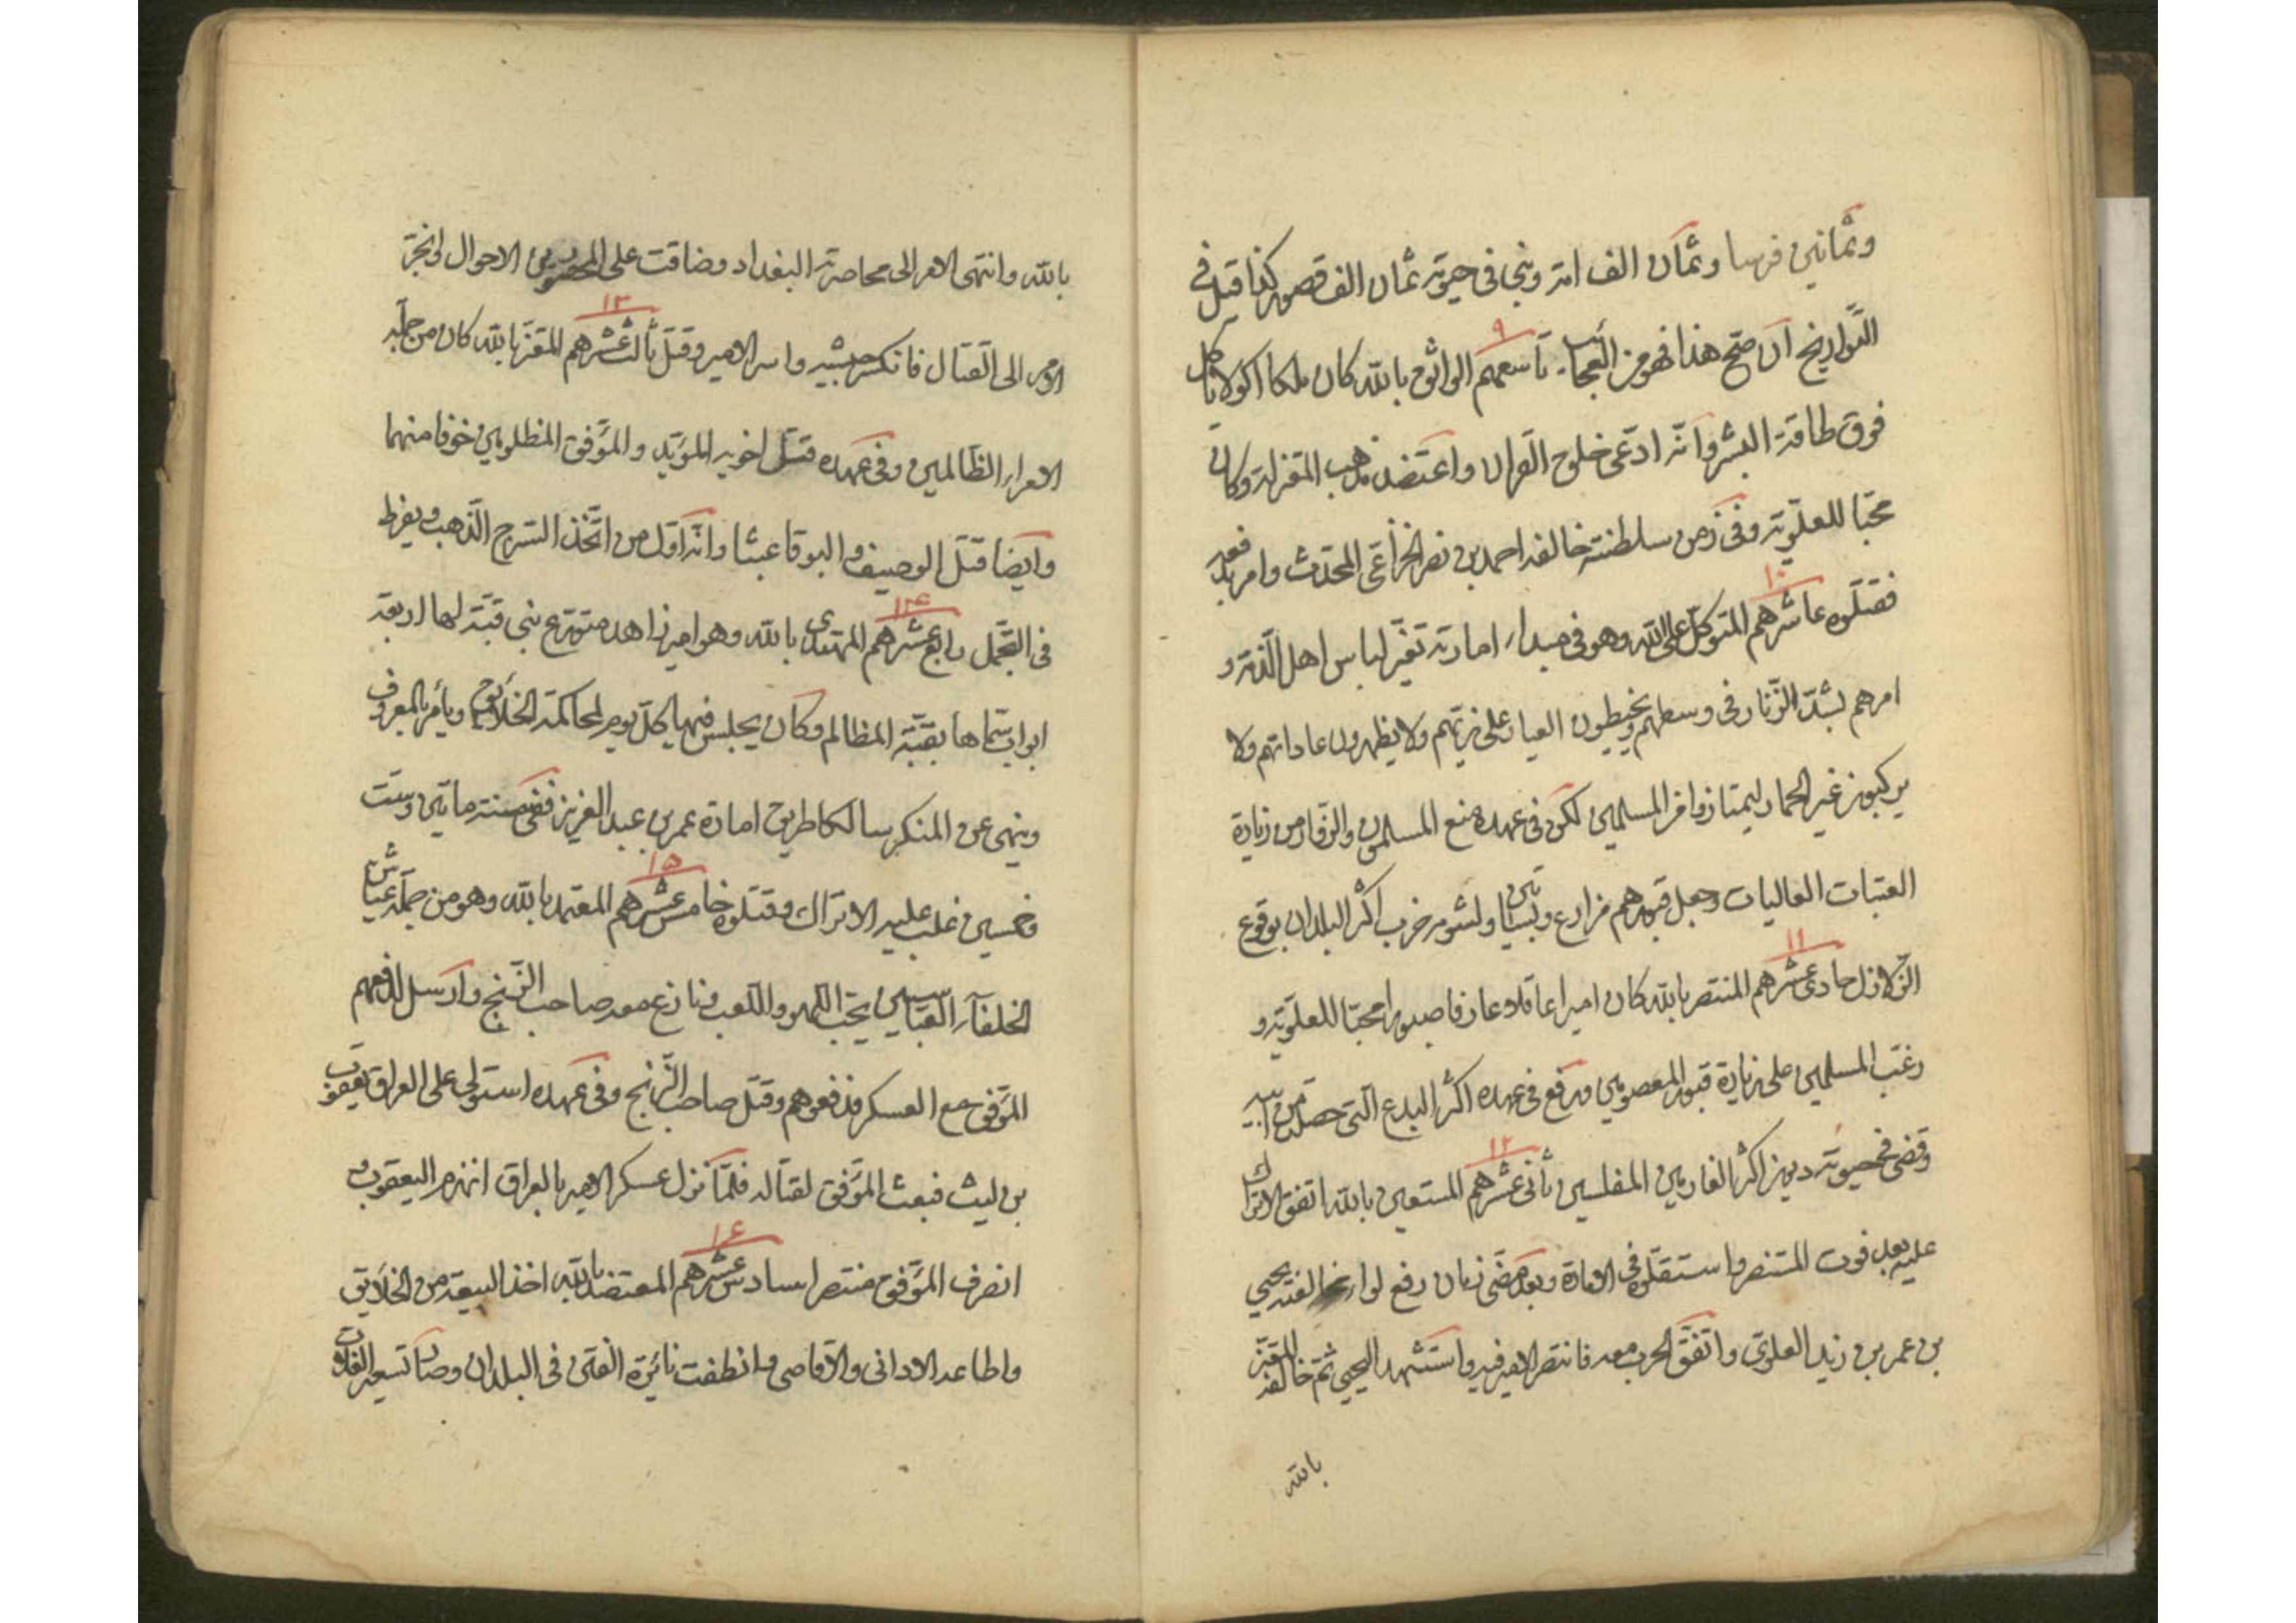 وثمانين فرسا وثمان الف امة وبنى فى حيوته ثمان الف قصور كذا قيل فى
التواريخ ان صح هذا فهو من العجائب ٩ تاسعهم الواثق بالله كان ملكا اكولا ياكل
فوق طاقة البشر وانه ادعى خلوق القران واعتضد مذهب المعتزلة وكان
محبا للعلوية وفى زمن سلطنته خالفه احمد بن نصر الخزاعى المحدث وامر بدفعه
فقتلوه ١٠ عاشرهم المتوكل على الله وهو فى مبداء امارته تغير لباس اهل الذمة و
امرهم بشد الزنار فى وسطهم ويخيطون العيا على زيهم ولا يظهرون عاداتهم ولا
يركبون غير الحمار ليمتازوا من المسلمين لكن فى عهده منع المسلمون والزوار من زيارة
العتبات العاليات وجعل قبورهم مزارع وبساتين ولشومه خرب اكثر البلدان بوقوع
الزلازل ١١ حادى عشرهم المنتصر بالله كان اميرا عاقلا وعارفا صبورا محبا للعلوية و
رغب المسلمين على زيارة قبور المعصومين ورفع فى عهده اكثر البدع التى حصلت من ابيه
وقضى فى حيوته ديون اكثر الغارمين المفلسين ١٢ ثانى عشرهم المستعين بالله اتفق الاتراك
عليه بعد فوت المنتصر واستقلوه فى الامارة وبعد مضى زمان رفع لواء مخالفته يحيى
بن عمر بن زيد العلوى واتفق الحرب معه فانتصر الامير فيه واستشهد اليحيى ثم خالفه المعتز
بالله
بالله وانتهى الامر الى محاصرة البغداد وضاقت على المحصورين الاحوال وانجر
الامر الى القتال فانكسر جيشه واسر الامير وقتل ١٣ ثالث عشرهم المعتز بالله كان من جملة
الامراء الظالمين وفى عهده قتل اخويه المؤيد والموفق المظلومين خوفا منهما
وايضا قتل الوصيف والبوقا عبثا وانه اول من اتخذ السرج الذهب ويفرط
فى التجمل ١٤ رابع عشرهم المهتدى بالله وهو امير زاهد متورع بنى قبة لها اربعة
ابواب سماها بقبة المظالم وكان يجلس فيها كل يوم لمحاكمة الخلايق ويأمر بالمعروف
وينهى عن المنكر سالكا طريق امارة عمر بن عبد العزيز ففى سنة ماتين وست
وخمسين غلب عليه الاتراك وقتلوه ١٥ خامس عشرهم المعتمد بالله وهو من جملة عياش
الخلفاء العباسيين يحب اللهو واللعب ونازع معه صاحب الزنج وارسل لدفعهم
الموفق مع العسكر فدفعوهم وقتل صاحب الزنج وفى عهده استولى على العراق يعقوب
بن ليث فبعث الموفق لقتاله فلما نزل عسكر الامير بالعراق انهزم اليعقوب و
انصرف الموفق منتصرا ١٦ سادس عشرهم المعتضد بالله اخذ البيعة من الخلايق
واطاعه الادانى والاقاصى وانطفت نائرة الفتن فى البلدان وصار تسعير الغلات